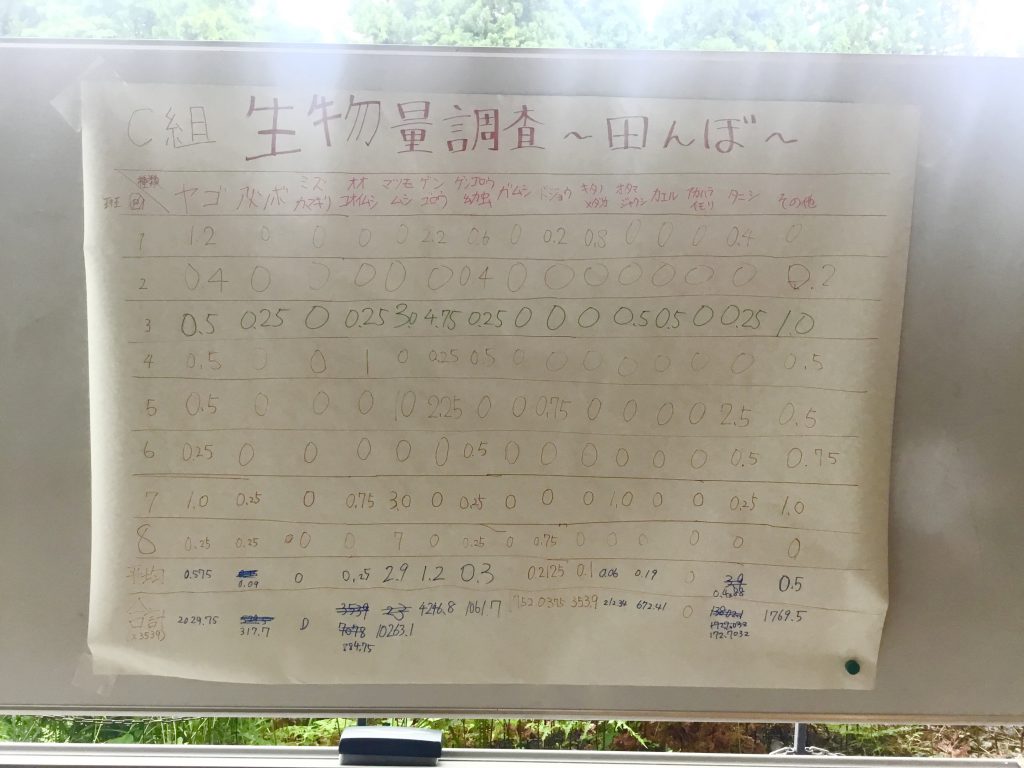 C組 生物量調査 ～田んぼ～
種類 ヤゴ ミズカマキリ オオコオイムシ マツモムシ ゲンゴロウ ゲンゴロウ幼虫 ガムシ ドジョウ キタノメダカ オタマジャクシ カエル アカハライモリ タニシ その他
班
1 1.2 0 0 0 0 2.2 0.6 0 0.2 0.8 0 0 0 0.4 0
2 0.4 0 0 0 0 0 0.4 0 0 0 0 0 0 0 0.2
3 0.5 0.25 0 0.25 3.0 4.75 0.25 0 0 0 0.5 0.5 0 0.25 1.0
4 0.5 0 0 1 0 0.25 0.5 0 0 0 0 0 0 0 0.5
5 0.5 0 0 0 10 2.25 0 0 0.75 0 0 0 0 2.5 0.5
6 0.25 0 0 0 0 0 0.5 0 0 0 0 0 0 0.5 0.75
7 1.0 0.25 0 0.75 3.0 0 0.25 0 0 0 1.0 0 0 0.25 1.0
8 0.25 0.25 0 0 7 0 0.25 0 0.75 0 0 0 0 0 0
平均 0.575 0.09 0 0.25 2.9 1.2 0.3 0.2125 0.1 0.06 0.19 0 0.5
合計 2029.75 317.7 0 3539 4246.8 1061.7 752.0375 353.9 212.34 672.41 0 1769.5
(×3539) 7078 10263.1 172.7032
884.75